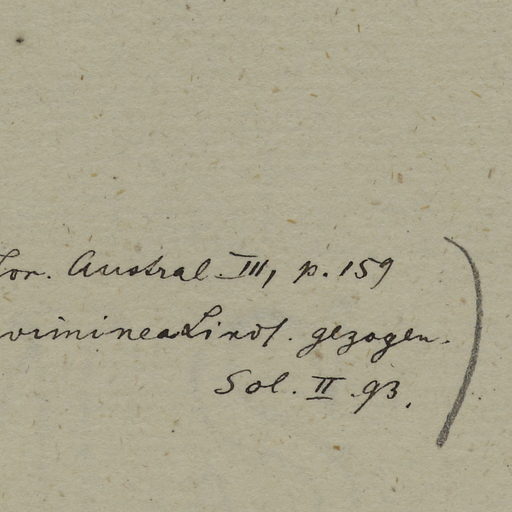 lor. Austral. III, p. 159
viminea Lindl. gezogen.
Sol. II. 93.